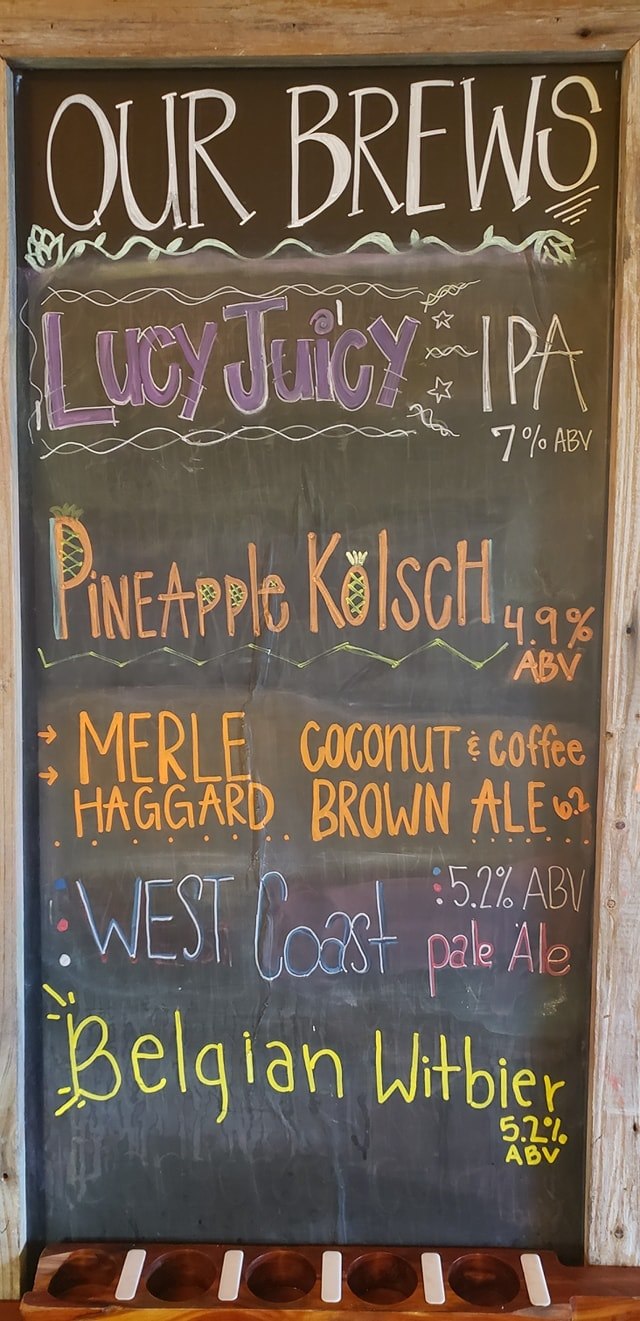 OUR BREWS
Lucy Juicy IPA
7% ABV
Pineapple Kölsch 4.9%
ABV
MERLE COCONUT & Coffee
HAGGARD BROWN ALE 6.2
WEST Coast 5.2% ABV
pale Ale
Belgian Witbier
5.2%
ABV